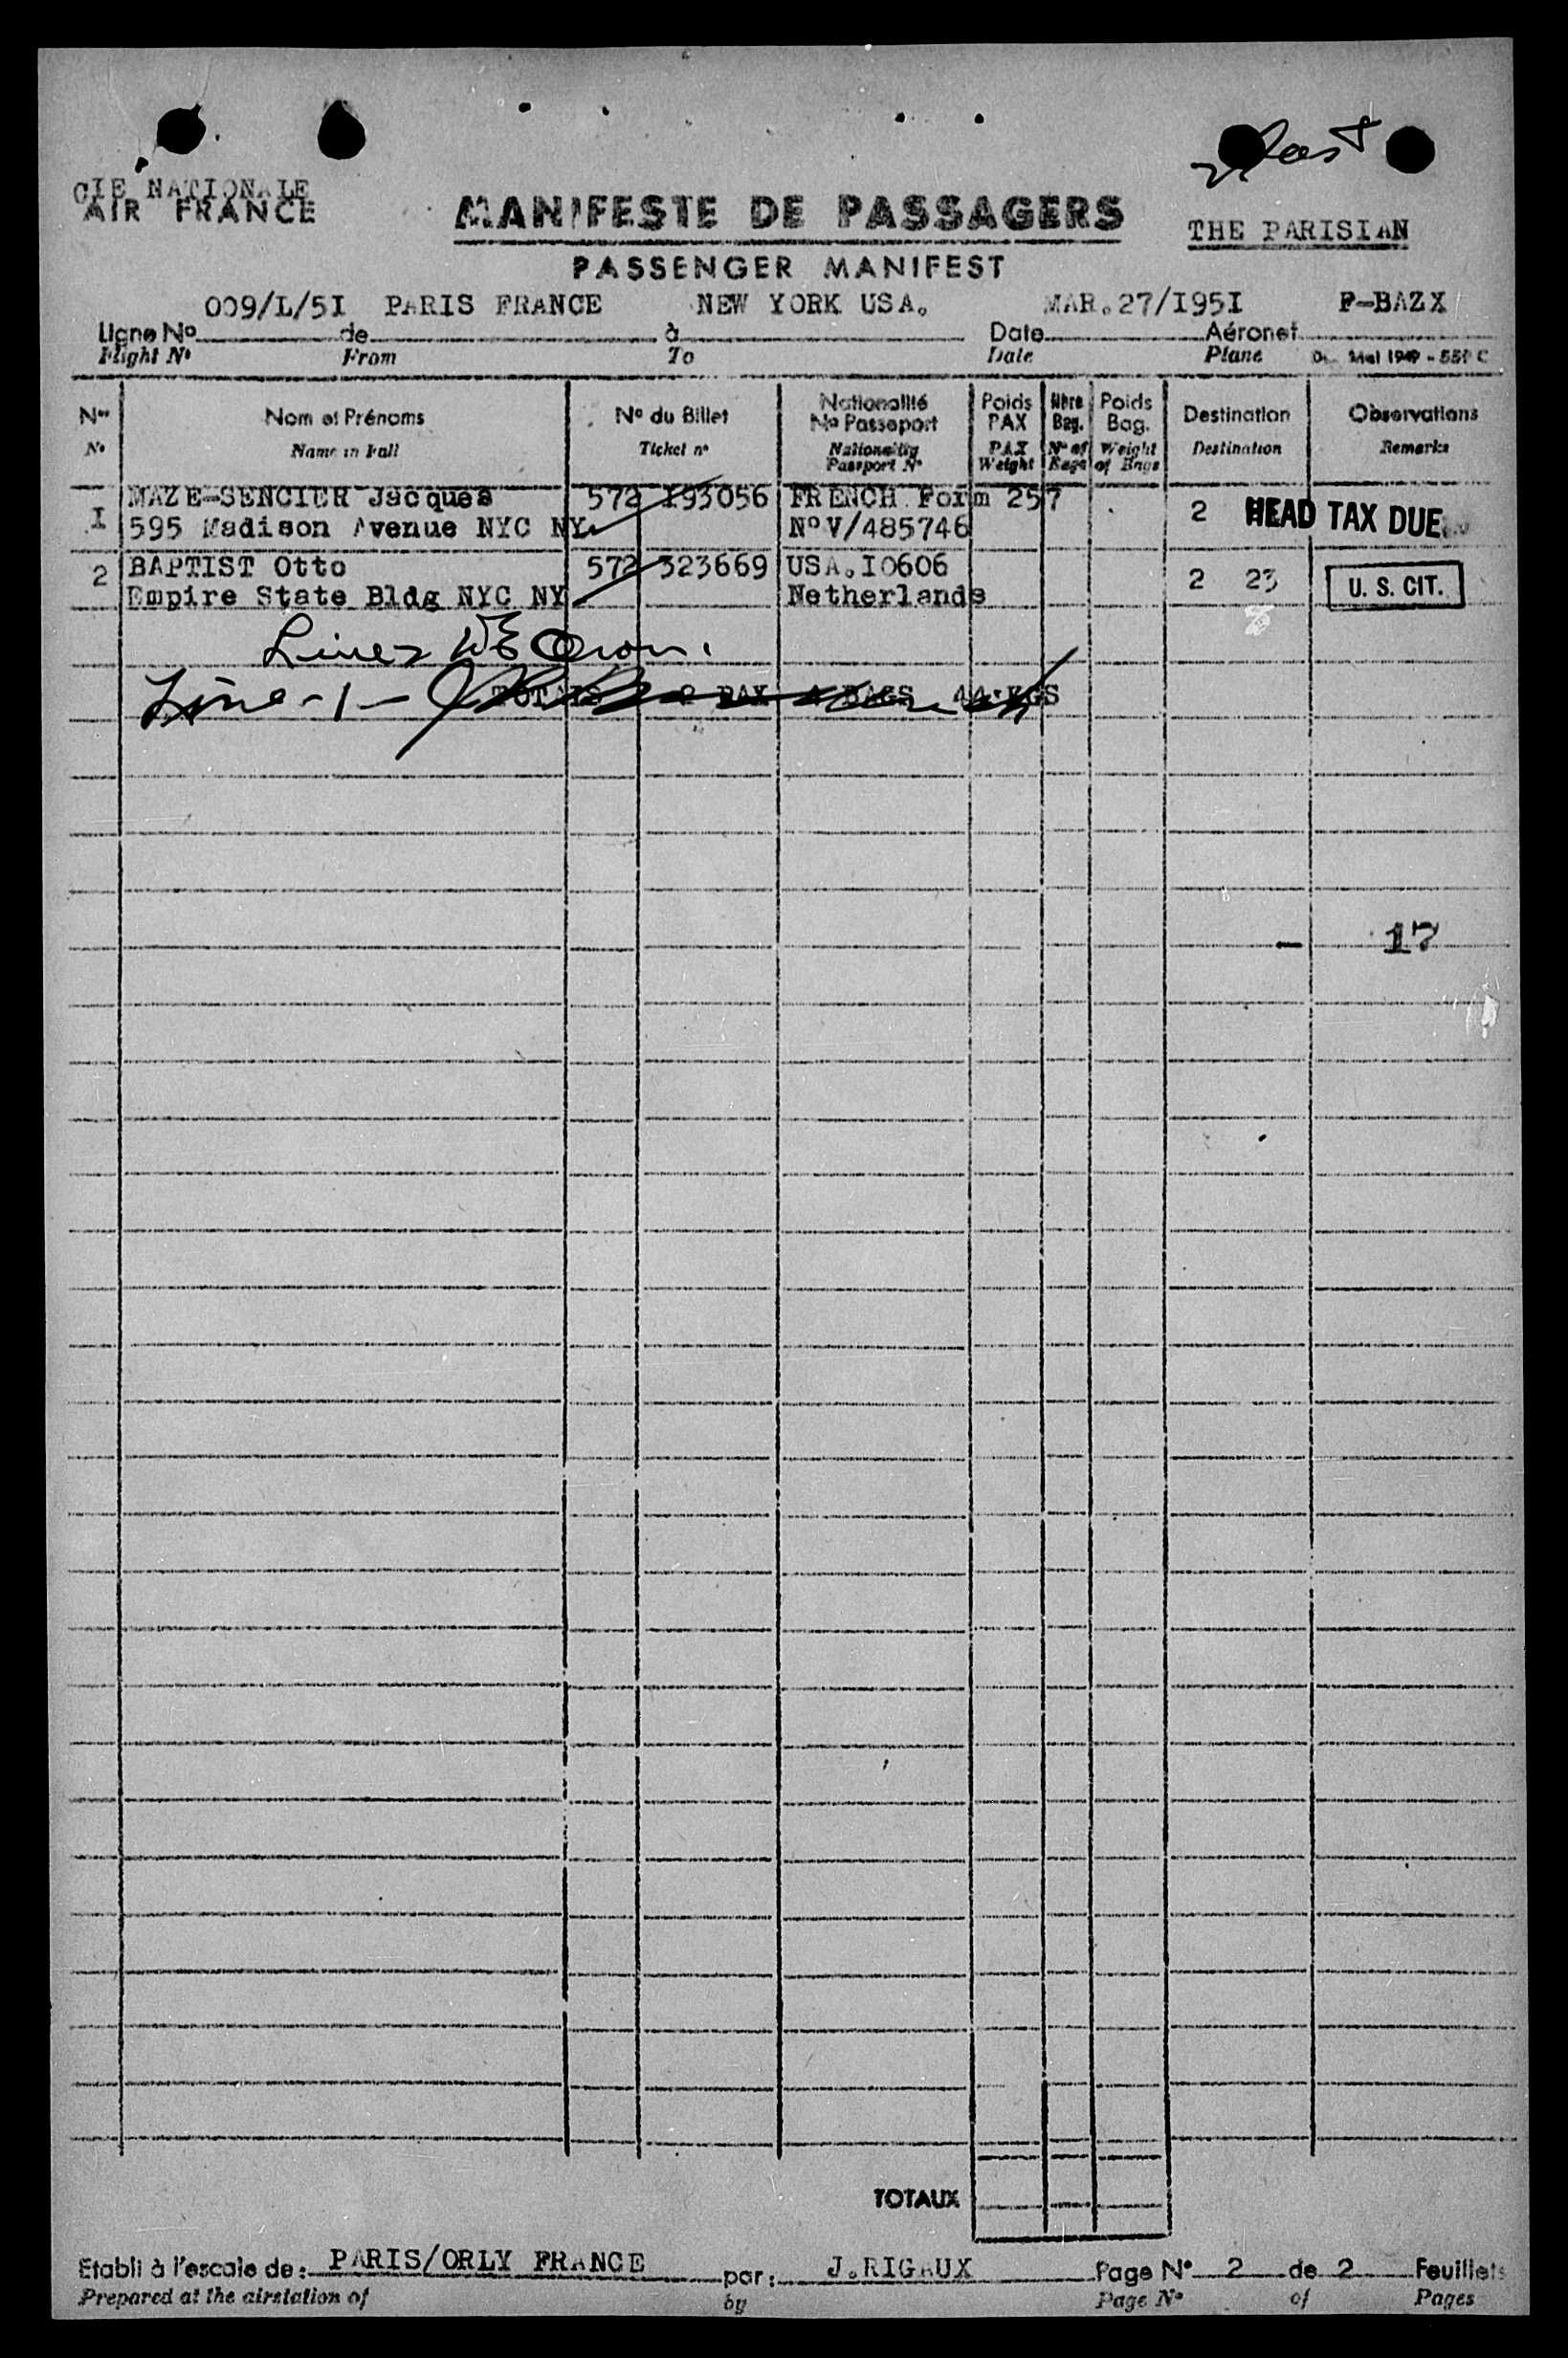 CIE NATIONALE
AIR FRANCE
MANIFESTE DE PASSAGERS
PASSENGER MANIFEST
THE PARISIAN
009/L/5I PARIS FRANCE NEW YORK USA. MAR.27/I95I F-BAZX
Ligne No de à Date Aéronef
Flight No From To Date Plane Mai 1949 - 551 C
Nos Nom et Prénoms No du Billet Nationalité No Passeport Poids PAX Nbre Bag. Poids Bag. Destination Observations
No Name in Full Ticket no Nationality Passport No PAX Weight No of Bags Weight of Bags Destination Remarks
I MAZE-SENCIER Jacques 572 I93056 FRENCH Form 257
595 Madison Avenue NYC NY NoV/485746 2 HEAD TAX DUE
2 BAPTIST Otto 572 323669 USA.I0606 2 23 U. S. CIT.
Empire State Bldg NYC NY Netherlands
Line-1-
TOTALS 2 PAX 4 BAGS 44 KGS
17
TOTAUX
Etabli à l'escale de: PARIS/ORLY FRANCE par: J.RIGAUX Page No 2 de 2 Feuillets
Prepared at the airstation of by Page No of Pages